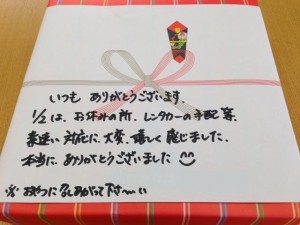 いつも ありがとうございます.
1/2は、お休みの所、レンタカーの手配等、
素速い対応に、大変、嬉しく感じました.
本当に ありがとうございました
※おやつに召しあがって下さ〜い